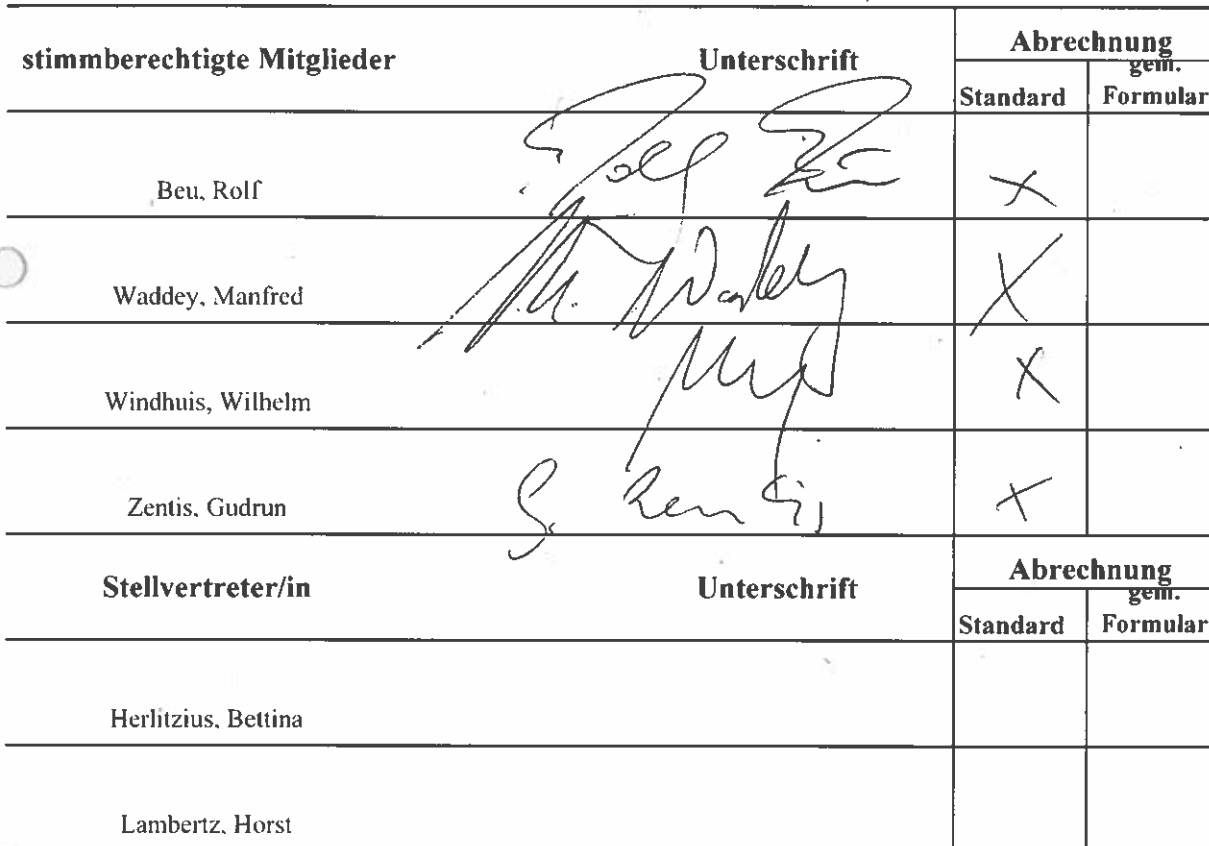 stimmberechtigte Mitglieder Unterschrift Abrechnung
Standard gem. Formular
Beu, Rolf Rolf Beu X
Waddey, Manfred M. Waddey X
Windhuis, Wilhelm X
Zentis, Gudrun G. Zentis X
Stellvertreter/in Unterschrift Abrechnung
Standard gem. Formular
Herlitzius, Bettina
Lambertz, Horst